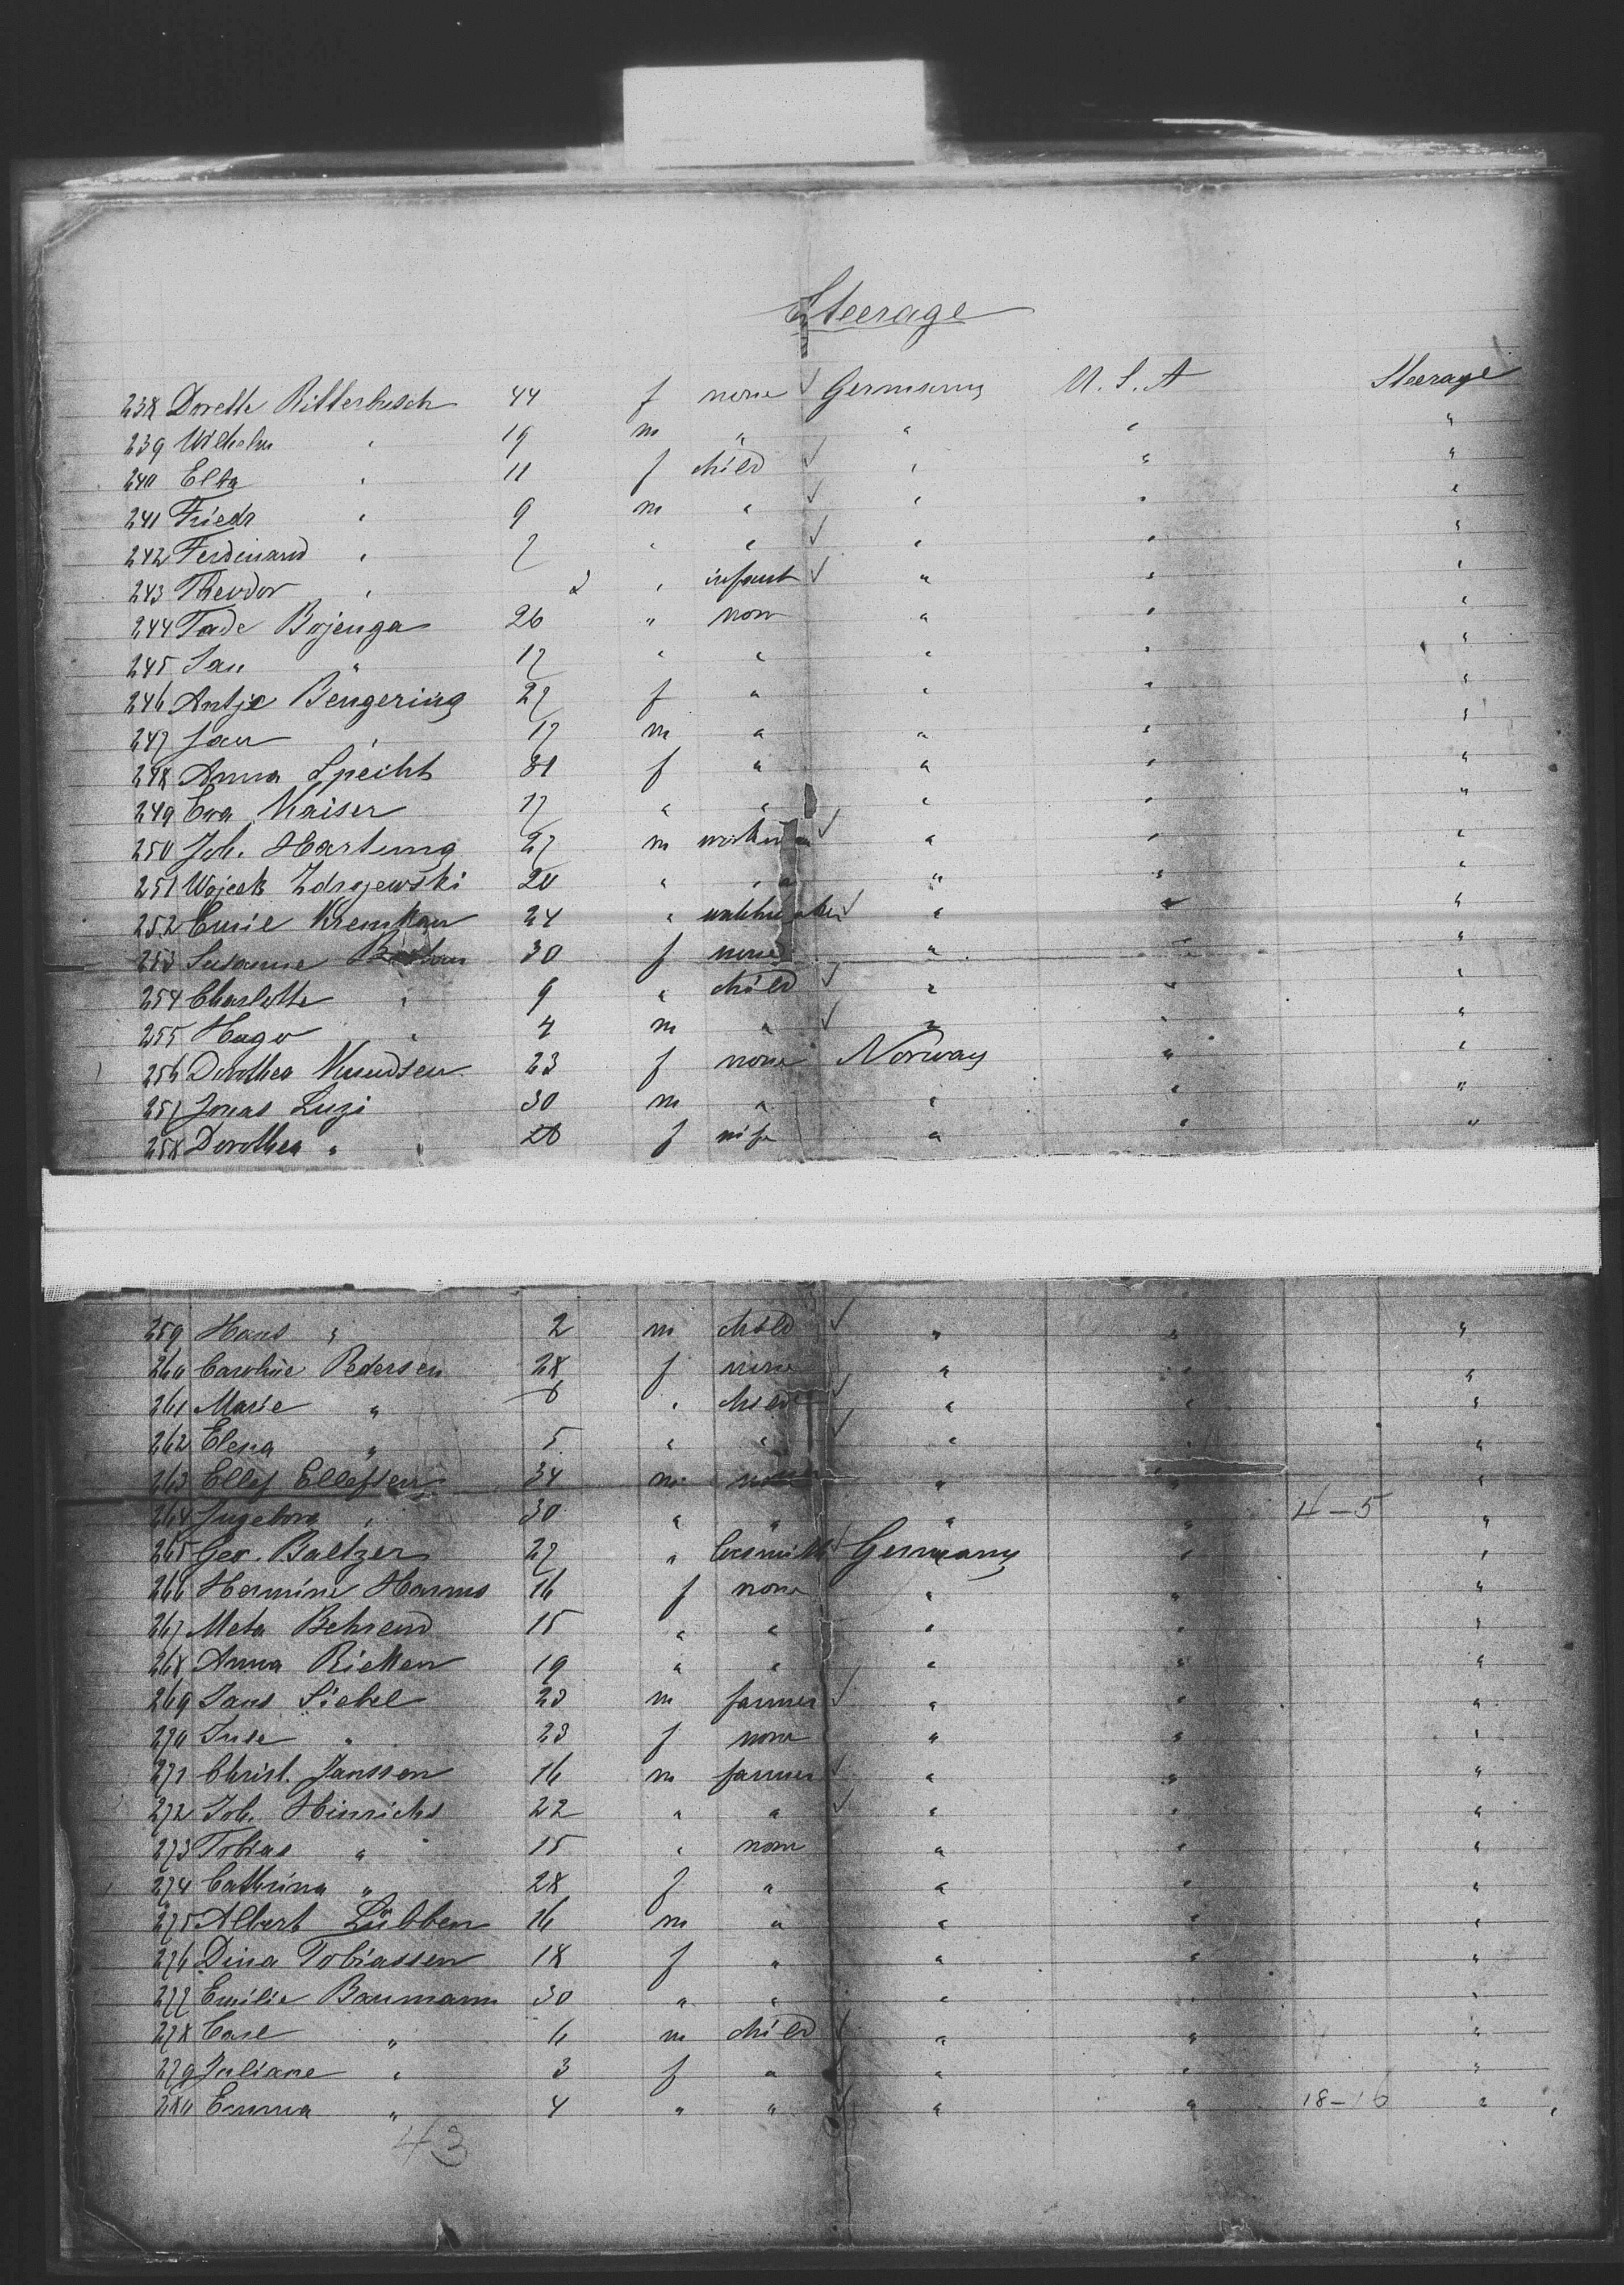 Steerage
238 Dorette Ritterbusch 44 f none ✓ Germany U. S. A Steerage
239 Wilhelm " 19 m " " " "
240 Elta " 11 f child ✓ " " "
241 Friedr " 9 m " ✓ " " "
242 Ferdinand " 7 " " ✓ " " "
243 Theodor " 2 " infant ✓ " " "
244 Tade Bojenga 26 " non " " "
245 Jan " 17 " " " " "
246 Antje Bengering 27 f " " " "
247 Jan " 17 m " " " "
248 Anna Specht 31 f " " " "
249 Eva Kaiser 17 " " " " "
250 Joh. Hartung 27 m ✓ " " "
251 Wojcek Zdrojewski 20 " " " " "
252 Emil Kremkau 24 " ✓ " " "
253 Susanne 30 f none " " "
254 Charlotte " 9 " child ✓ " " "
255 Hugo " 4 m " ✓ " " "
256 Dorothea Knudsen 23 f none Norway " "
257 Jonas Luzi 30 m " " " "
258 Dorothea " f wife " " "
259 Hans " 2 m child ✓ " " "
260 Caroline Pedersen 28 f none " " "
261 Marie " 6 " child ✓ " " "
262 Elena " 5 " " ✓ " " "
263 Ellef Ellefsen 34 m none " " "
264 Ingeborg " 30 " " " " 4-5 "
265 Geo. Baltzer 27 " ✓ Germany " "
266 Hermine Harms 16 f none " " "
267 Meta Behrend 15 " " " " "
268 Anna Riekken 19 " " " " "
269 Jans Siebel 23 m farmer ✓ " " "
270 Inse " 23 f none " " "
271 Christ. Janssen 16 m farmer ✓ " " "
272 Joh. Hinrichs 22 " " ✓ " " "
273 Tobias " 15 " none " " "
274 Cathrina " 28 f " " " "
275 Albert Lübben 16 m " " " "
276 Dina Tobiassen 18 f " " " "
277 Emilie Baumann 30 " " " " "
278 Carl " 6 m child ✓ " " "
279 Juliane " 3 f " " " "
280 Emma " 4 " " " " 18-16 "
43